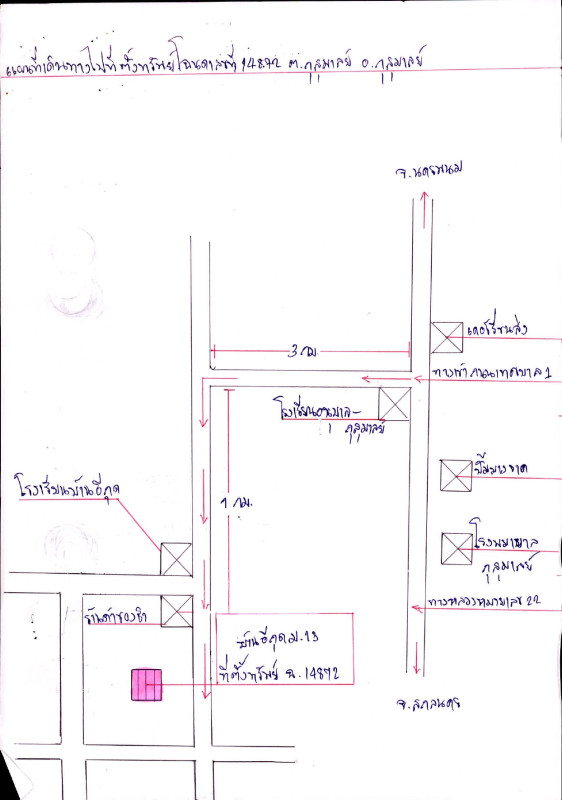 แผนที่เดินทางไปที่ตั้งทรัพย์โฉนดเลขที่ 14872 ต.กุสุมาลย์ อ.กุสุมาลย์
จ.นครพนม
เคอรี่ขนส่ง
3 กม.
ทางเข้าถนนเทศบาล 1
โรงเรียนอนุบาล-
กุสุมาลย์
ปั๊มบางจาก
โรงเรียนบ้านอีกุด
1 กม.
โรงพยาบาล
กุสุมาลย์
ทางหลวงหมายเลข 22
ร้านค้าของชำ
บ้านอีกุด ม.13
ที่ตั้งทรัพย์ ฉ.14872
จ.สกลนคร